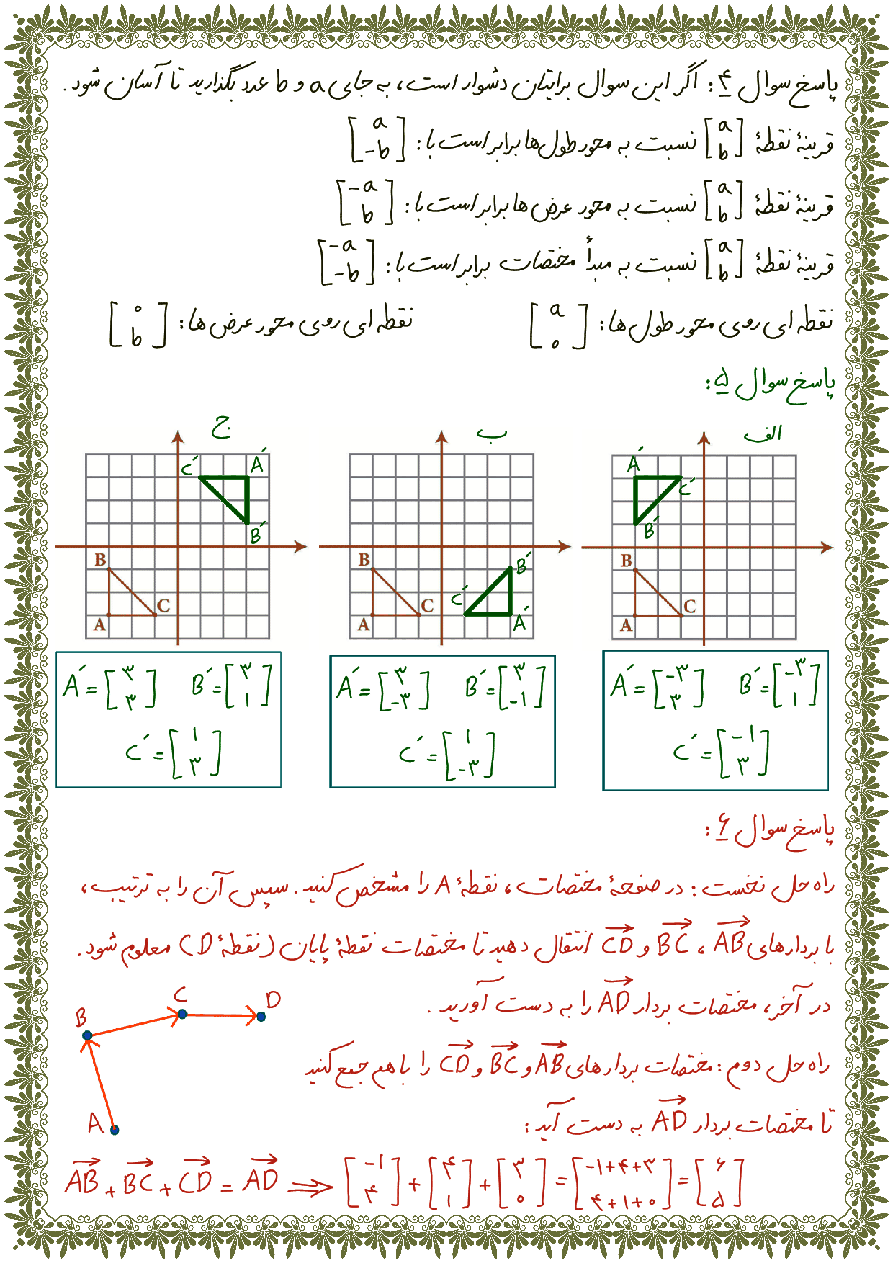 پاسخ سوال ۴: اگر این سوال برایتان دشوار است، به جای a و b عدد بگذارید تا آسان شود.
قرینهٔ نقطهٔ [a b] نسبت به محور طول‌ها برابر است با: [a -b]
قرینهٔ نقطهٔ [a b] نسبت به محور عرض‌ها برابر است با: [-a b]
قرینهٔ نقطهٔ [a b] نسبت به مبدأ مختصات برابر است با: [-a -b]
نقطه‌ای روی محور طول‌ها: [a ۰] نقطه‌ای روی محور عرض‌ها: [۰ b]
پاسخ سوال ۵:
الف
A´ C´
B´
B
A C
ب
B B´
A C C´ A´
ج
C´ A´
B´
B
A C
A´=[-۳ ۳] B´=[-۳ ۱]
C´=[-۱ ۳]
A´=[۳ -۳] B´=[۳ -۱]
C´=[۱ -۳]
A´=[۳ ۳] B´=[۳ ۱]
C´=[۱ ۳]
پاسخ سوال ۶:
راه حل نخست: در صفحهٔ مختصات، نقطهٔ A را مشخص کنید. سپس آن را به ترتیب،
با بردارهای AB، BC و CD انتقال دهید تا مختصات نقطهٔ پایان (نقطهٔ D) معلوم شود.
در آخر، مختصات بردار AD را به دست آورید.
راه حل دوم: مختصات بردارهای AB و BC و CD را با هم جمع کنید
تا مختصات بردار AD به دست آید:
B C D
A
AB + BC + CD = AD ⟹ [-۱ ۴] + [۴ ۱] + [۳ ۰] = [-۱+۴+۳ ۴+۱+۰] = [۶ ۵]